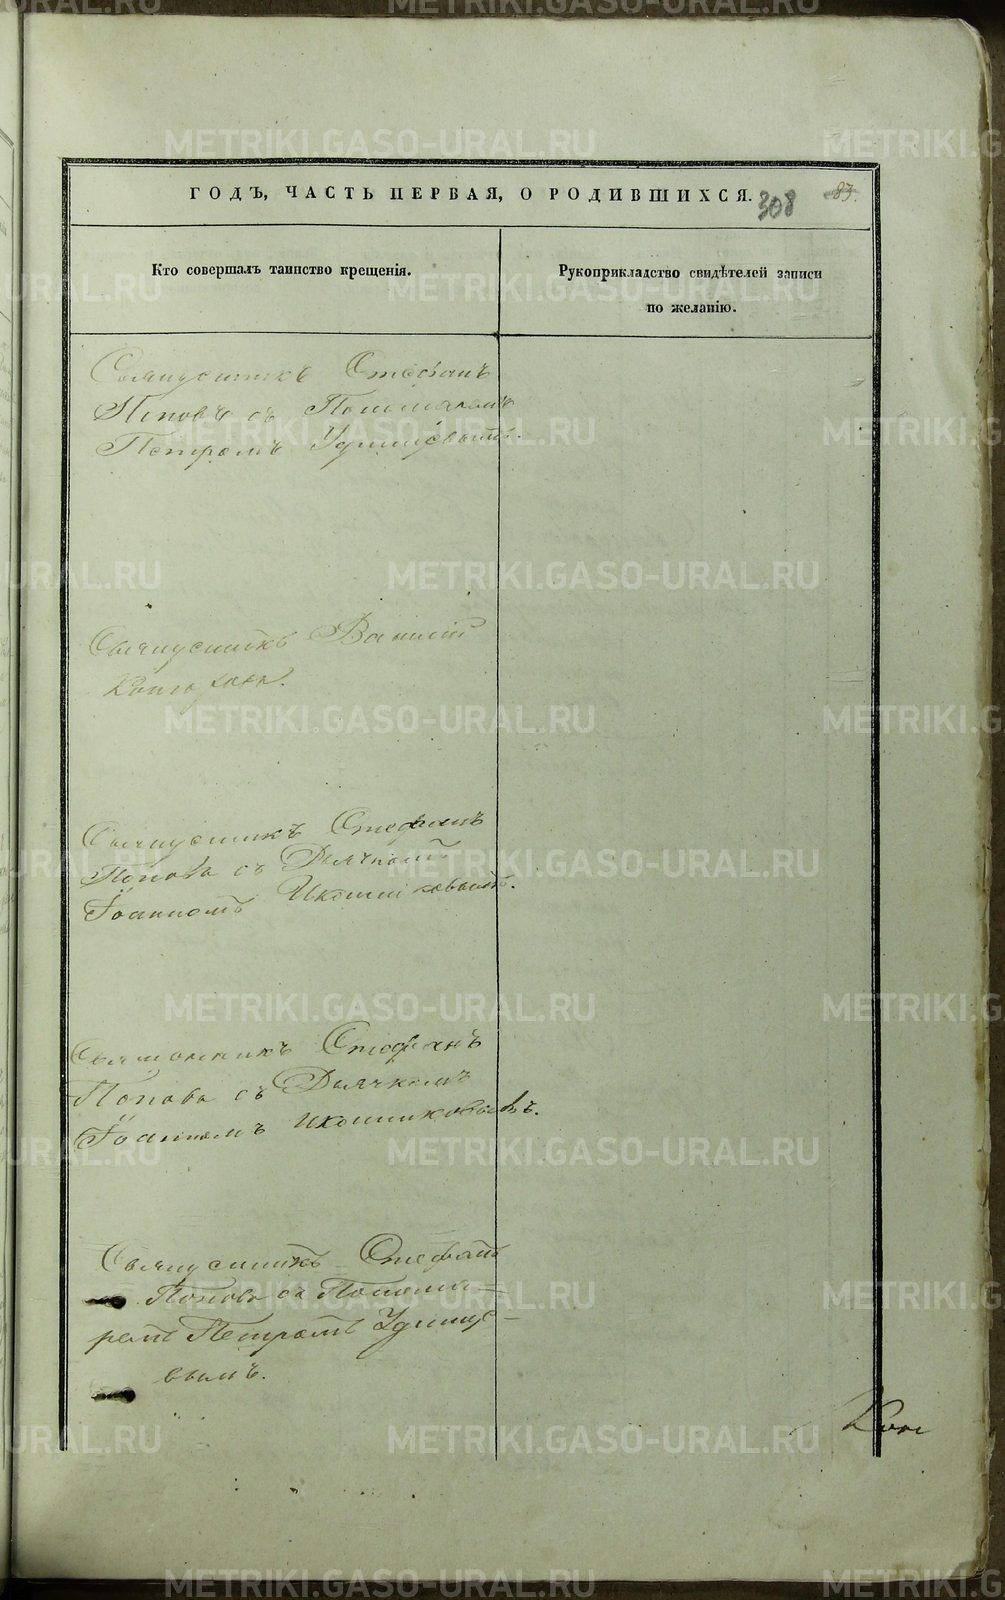 ГОДЪ, ЧАСТЬ ПЕРВАЯ, О РОДИВШИХСЯ.
308 83.
Кто совершалъ таинство крещенія.
Рукоприкладство свидѣтелей записи
по желанію.
Священникъ Стефанъ
Поповъ съ Пономаремъ
Петромъ Удинцевымъ.
Священникъ Василій
Священникъ Стефанъ
Поповъ съ Дьячкомъ
Іоанномъ Иконниковымъ.
Священникъ Стефанъ
Поповъ съ Дьячкомъ
Іоанномъ Иконниковымъ.
Священникъ Стефанъ
Поповъ съ Понома=
ремъ Петромъ Удинце=
вымъ.
METRIKI.GASO-URAL.RU